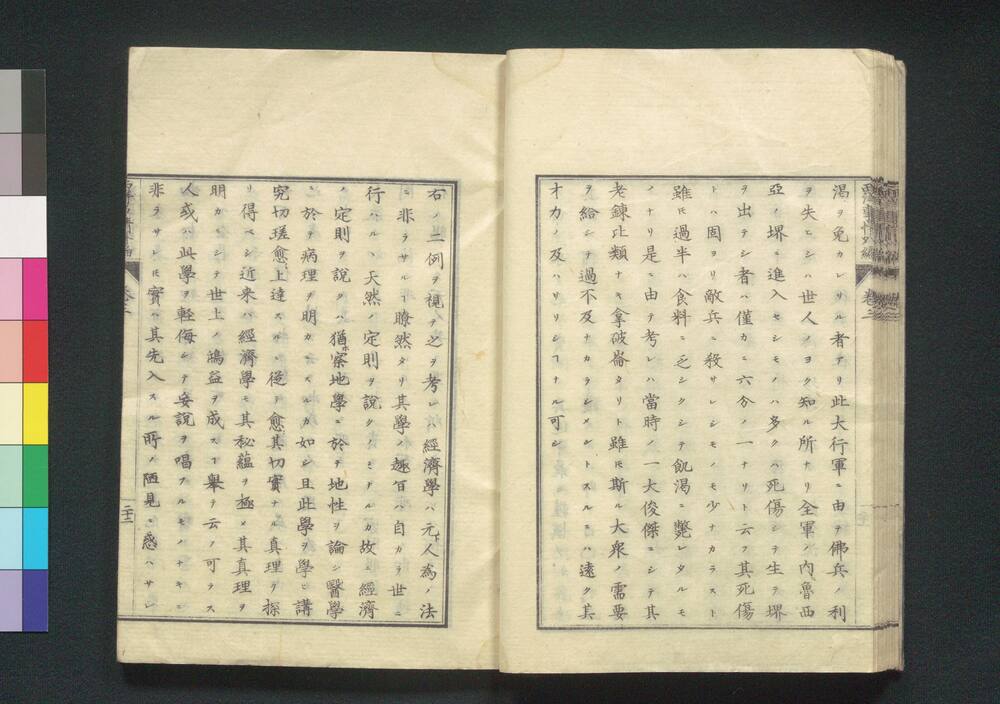 西洋事情外編 卷三
渇ヲ免カレザル者アリ此大行軍ニ由テ佛兵ノ利
ヲ失ヒシハ世人ノヨク知ル所ナリ全軍ノ内魯西
亞ノ堺ニ進入セシモノハ多クハ死傷シテ生テ堺
ヲ出デシ者ハ僅カニ六分ノ一ナリト云フ其死傷
トハ固ヨリ敵兵ニ殺サレシモノモ少ナカラズト
雖𪜈過半ハ食料ニ乏シクシテ飢渇ニ斃レタルモ
ノナリ是ニ由テ考レハ當時ノ一大俊傑ニシテ其
老錬比類ナキ拿破崙タリト雖𪜈斯ル大衆ノ需要
ヲ給シテ過不及ナカラシメントスルニハ遠ク其
才力ノ及ハザリシヿナル可シ
右ノ二例ヲ視テ之ヲ考レハ經濟學ハ元ト人為ノ法
ニ非ラザルヿ瞭然タリ其學ノ趣旨ハ自カラ世ニ
行ハルヽ天然ノ定則ヲ説クノミナルカ故ニ經濟
ノ定則ヲ説クハ猶ホ窮地學ニ於テ地性ヲ論シ醫學
ニ於テ病理ヲ明カニスルカ如シ且此學ヲ學ヒ講
究切瑳愈上達スルニ從テ愈其切實ナル真理ヲ探
リ得ベシ近來ハ經濟學モ其秘蘊ヲ極メ其真理ヲ
明カニシテ世上ノ鴻益ヲ成スヿ舉テ云フ可ラス
人或ハ此學ヲ輕侮シテ妄説ヲ唱フルモノナキニ
非ラザレ𪜈實ハ其先入スル所ノ陋見ニ惑ハサレ
二十二